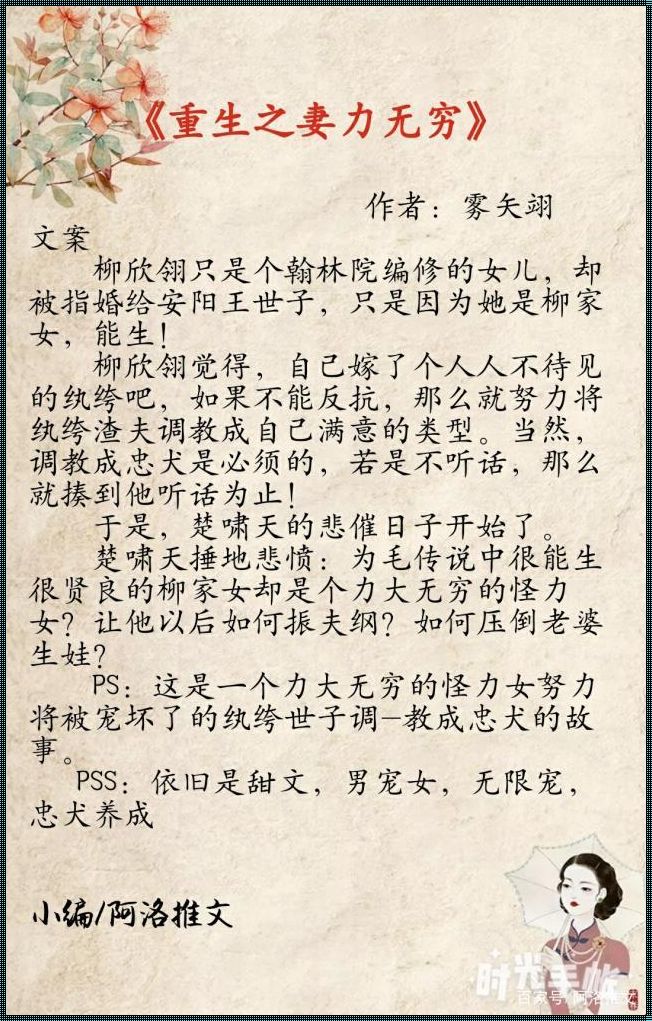 《重生之妻力无穷》
作者：雾矢翊
文案
柳欣翎只是个翰林院编修的女儿，却
被指婚给安阳王世子，只是因为她是柳家
女，能生！
柳欣翎觉得，自己嫁了个人人不待见
的纨绔吧，如果不能反抗，那么就努力将
纨绔渣夫调教成自己满意的类型。当然，
调教成忠犬是必须的，若是不听话，那么
就揍到他听话为止！
于是，楚啸天的悲催日子开始了。
楚啸天捶地悲愤：为毛传说中很能生
很贤良的柳家女却是个力大无穷的怪力
女？让他以后如何振夫纲？如何压倒老婆
生娃？
PS：这是一个力大无穷的怪力女努力
将被宠坏了的纨绔世子调—教成忠犬的故
事。
PSS：依旧是甜文，男宠女，无限宠，
忠犬养成
小编/阿洛推文
时光手帐
百家号/阿洛推文